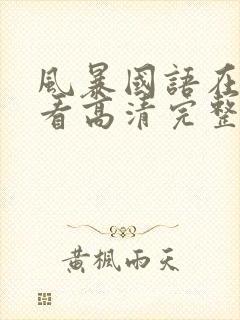 風暴國語在
看高清完整
黃楓雨天